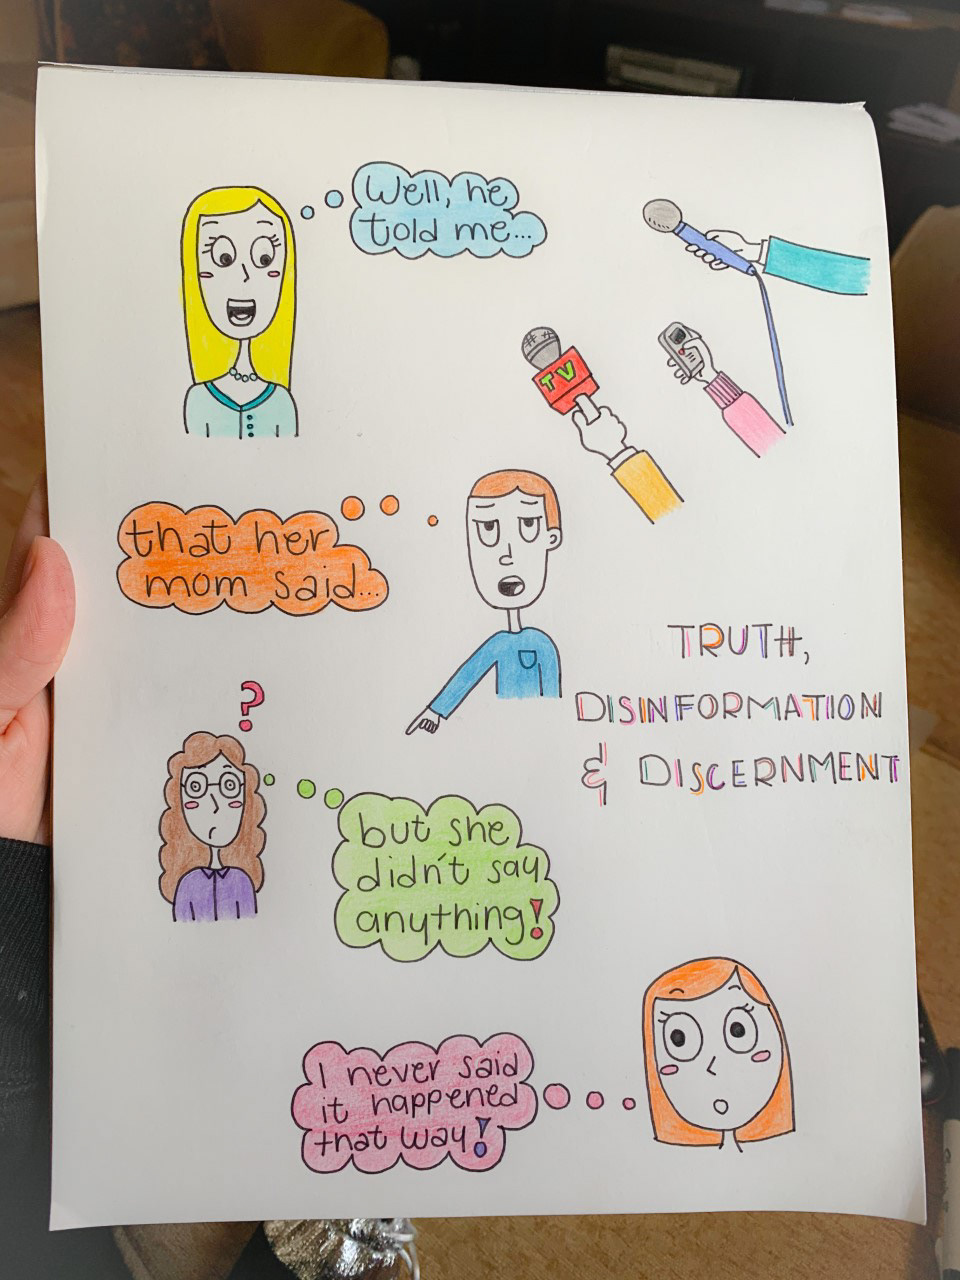 Well, he
told me...
TV
that her
mom said...
TRUTH,
DISINFORMATION
& DISCERNMENT
?
but she
didn't say
anything!
I never said
it happened
that way!